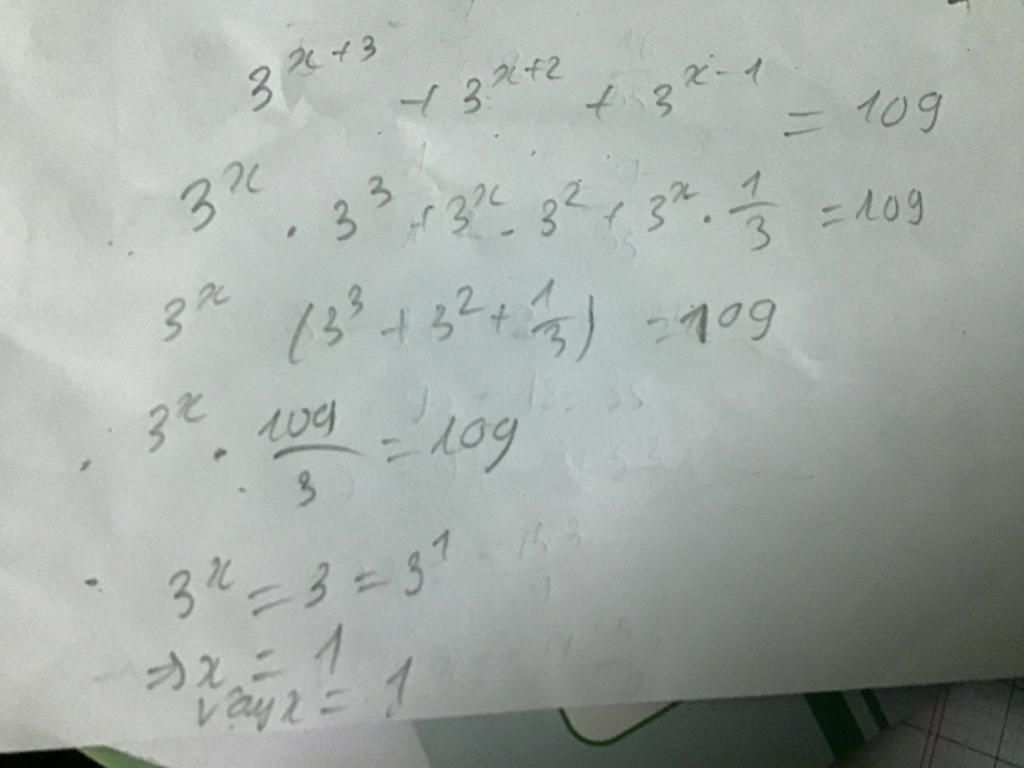 3^{x+3} + 3^{x+2} + 3^{x-1} = 109
3^x . 3^3 + 3^x . 3^2 + 3^x . \frac{1}{3} = 109
3^x (3^3 + 3^2 + \frac{1}{3}) = 109
3^x . \frac{109}{3} = 109
3^x = 3 = 3^1
⇒ x = 1
Vậy x = 1